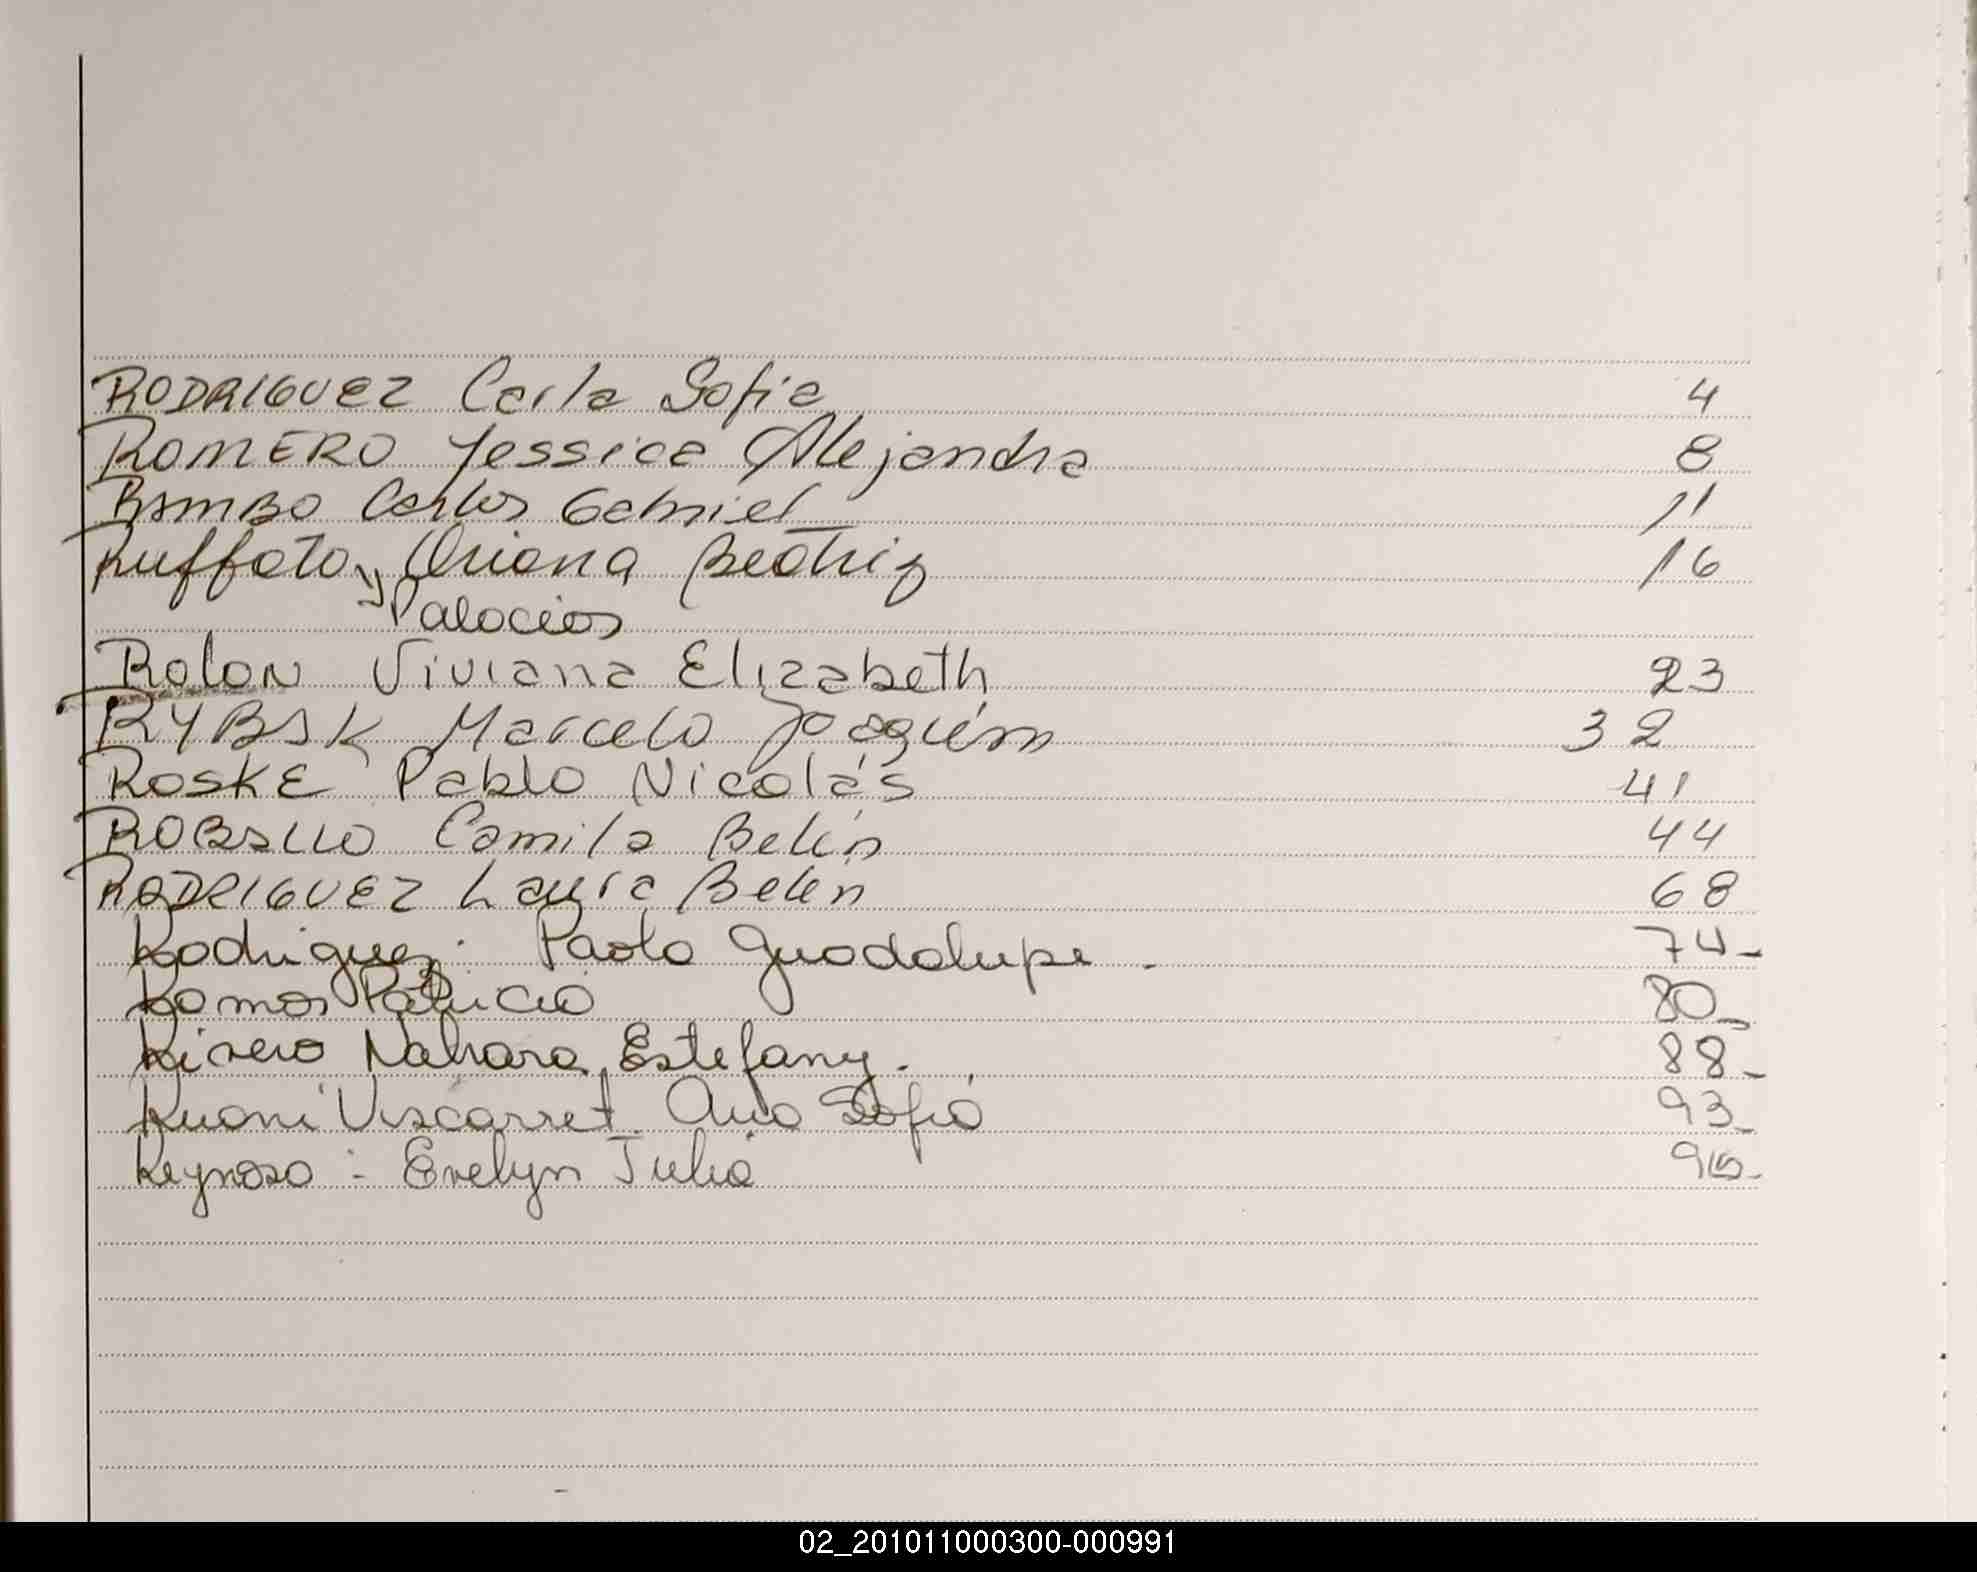 RODRIGUEZ Carla Sofia 4
ROMERO Yessica Alejandra 8
RAMBO Carlos Gabriel 11
Ruffato y Oriana Beatriz 16
Palacios
Rolon Viviana Elizabeth 23
RYBAK Marcelo Joaquím 32
ROSKE Pablo Nicolás 41
ROBALLO Camila Belén 44
RODRIGUEZ Laura Belén 68
Rodriguez: Paola Guadalupe. 74-
Ramos Patricia 80-
Rivero Nahara Estefany. 88-
Ruani Viscarret Ana Sofia 93-
Reynoso: Evelyn Julia
02_201011000300-000991